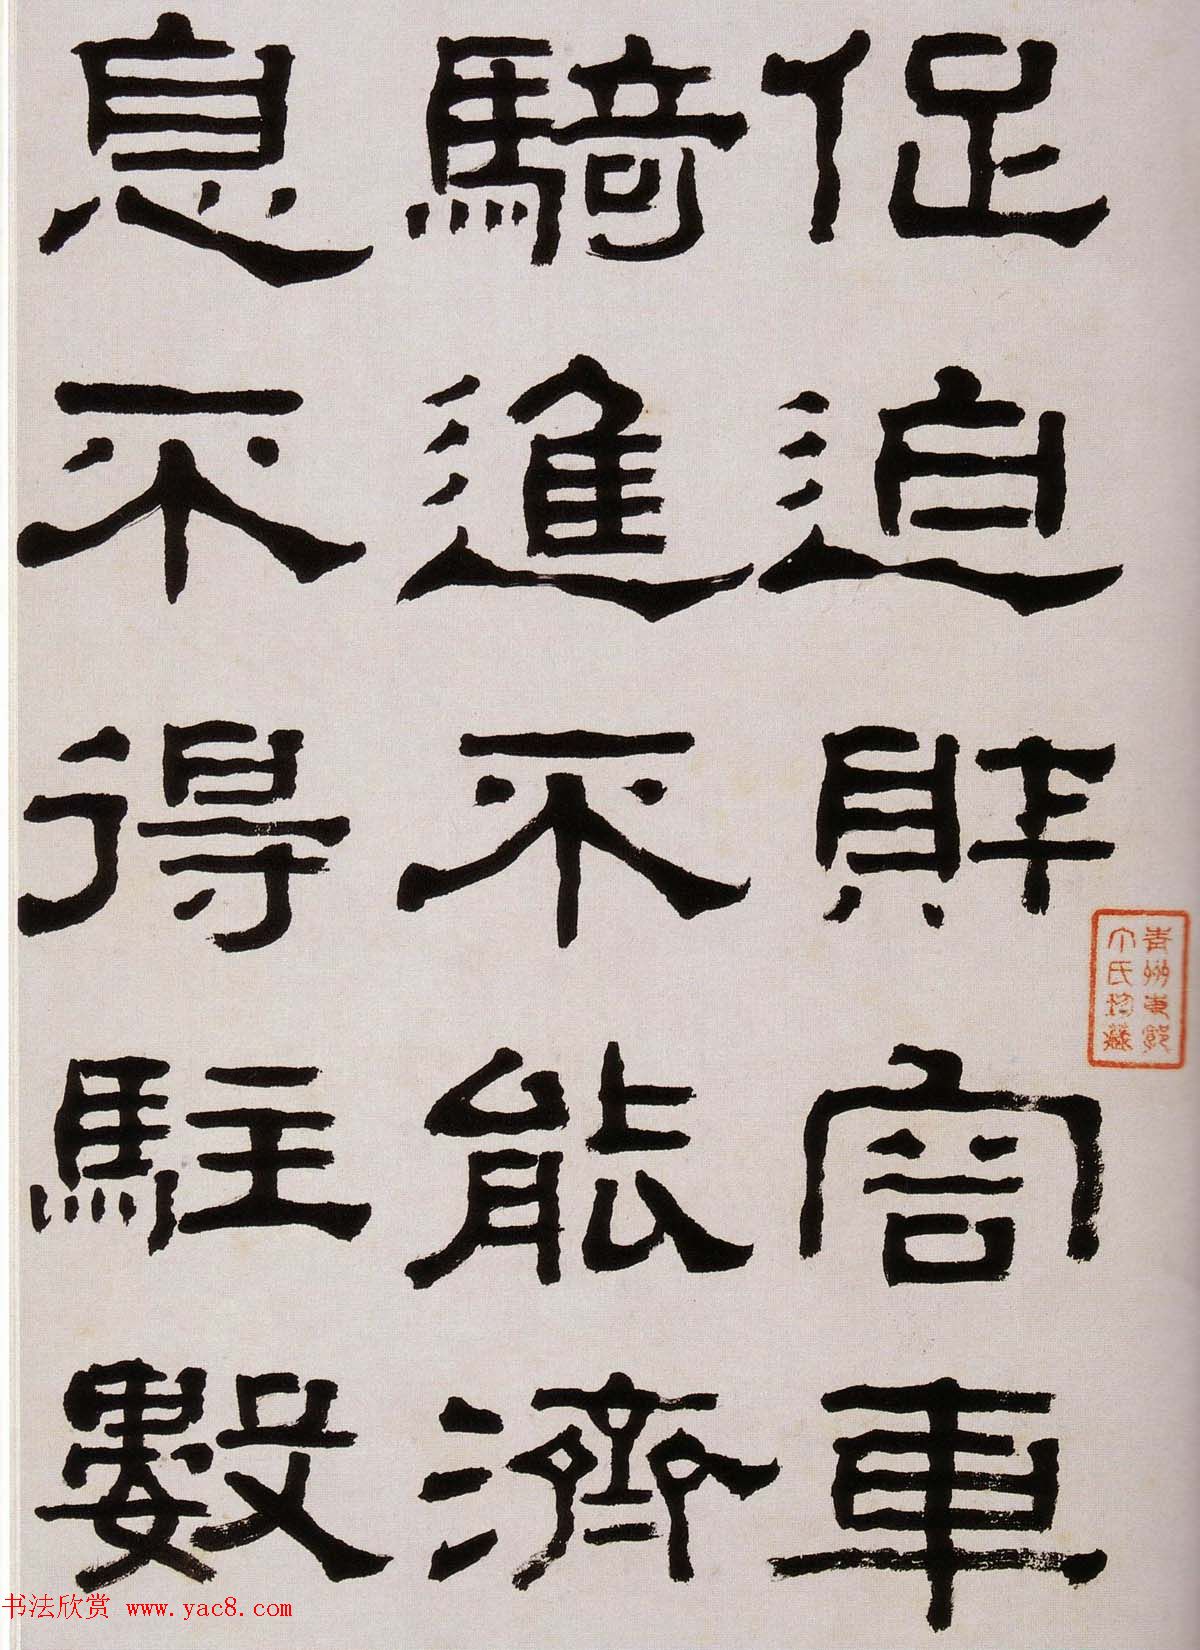 促迫財容車
騎進不能濟
息不得駐數
青州東郭
氏珍藏
书法欣赏 www.yac8.com